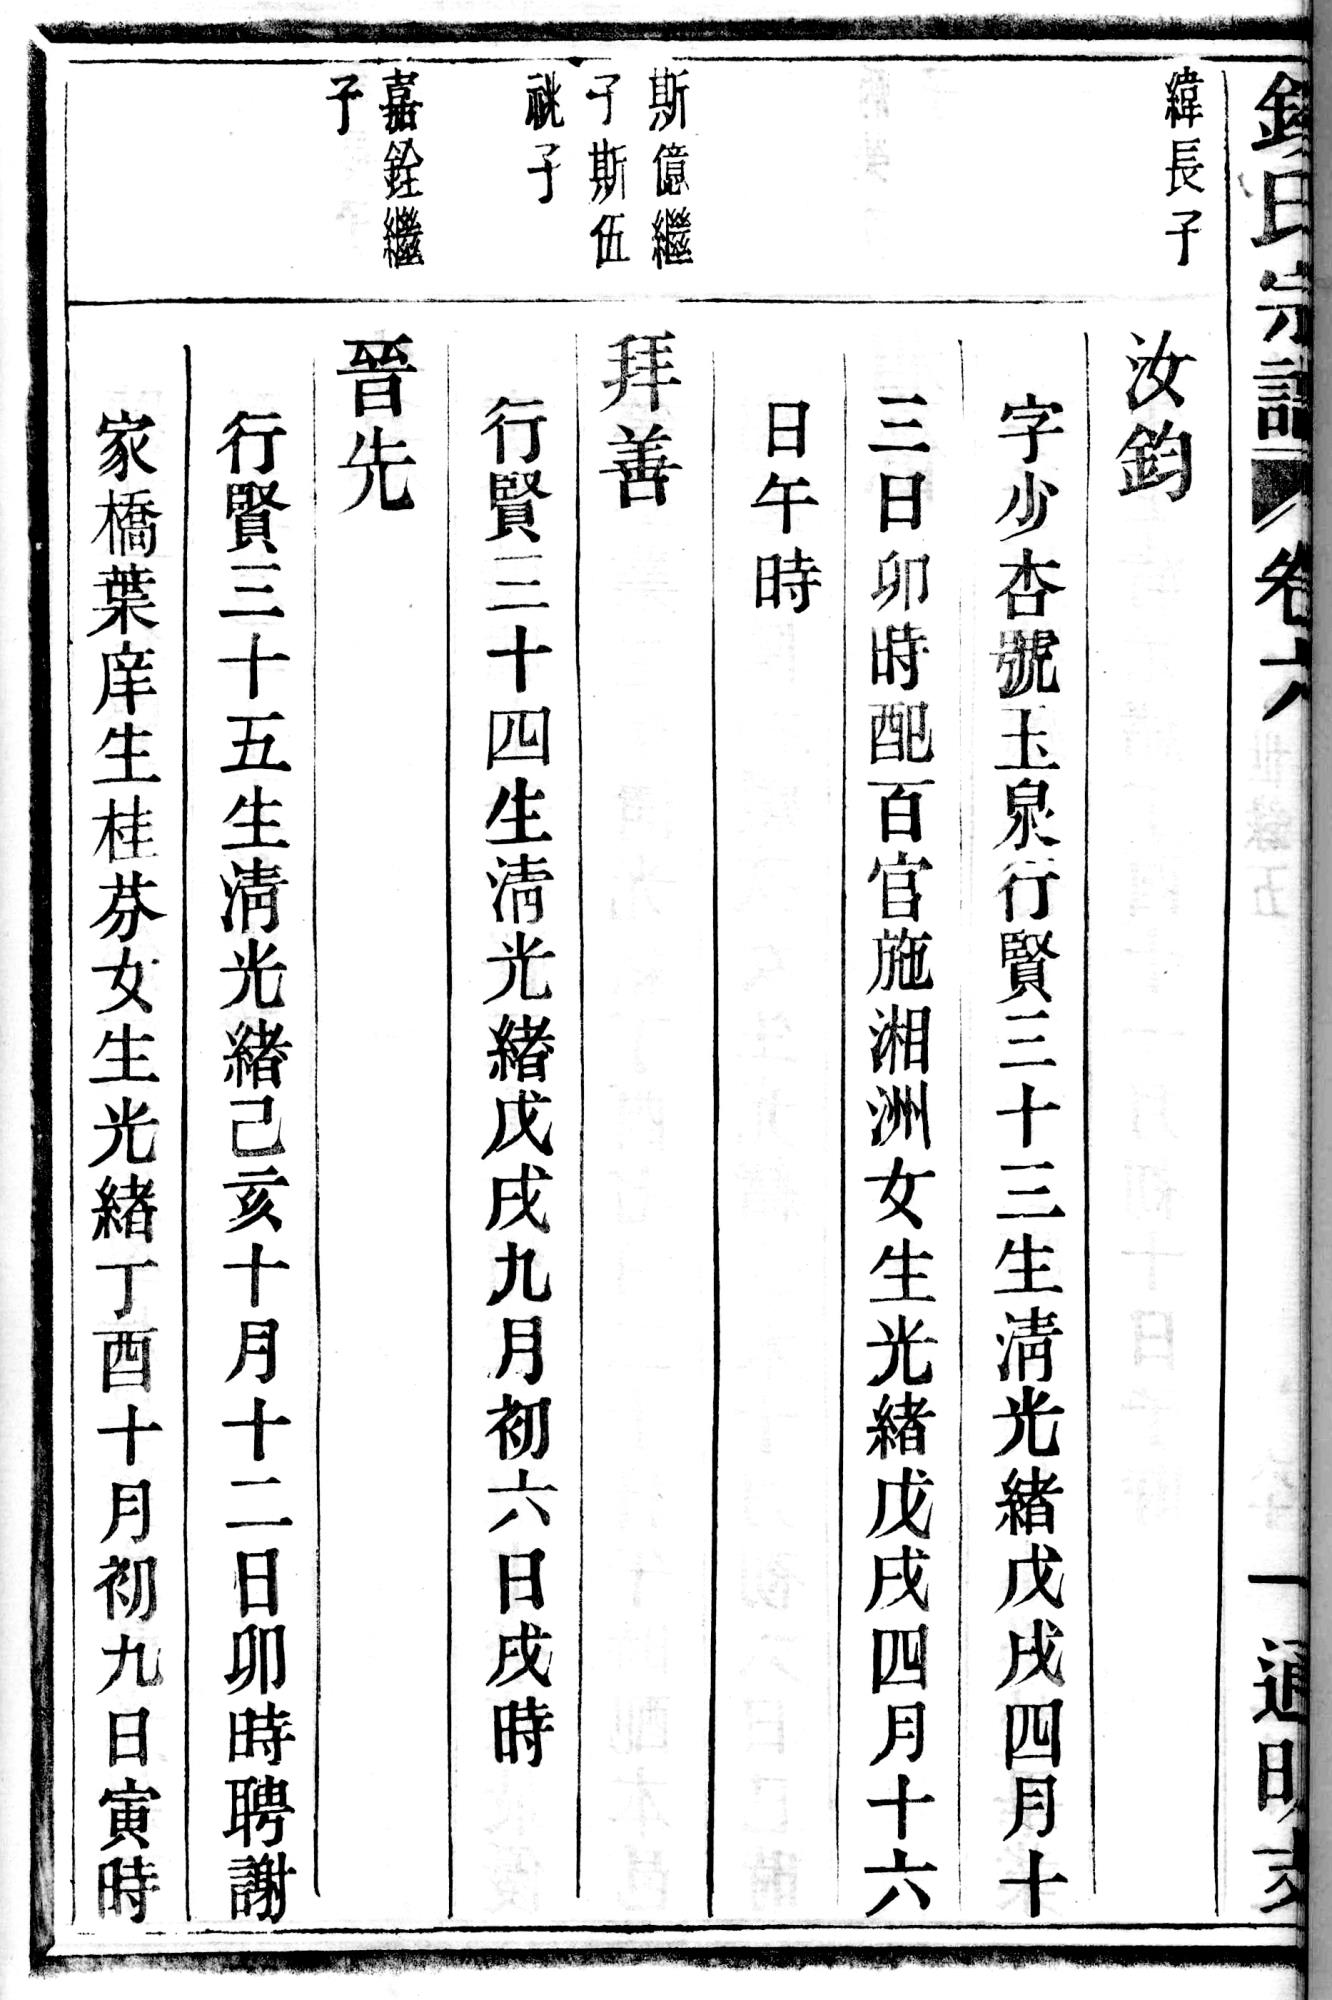 錢氏宗譜 卷六 一 通明支
緯長子
汝鈞
字少杏號玉泉行賢三十三生淸光緒戊戌四月十
三日卯時配百官施湘洲女生光緒戊戌四月十六
日午時
斯億繼
子斯伍
祧子
拜善
行賢三十四生淸光緒戊戌九月初六日戌時
嘉銓繼
子
晉先
行賢三十五生淸光緒己亥十月十二日卯時聘謝
家橋葉庠生桂芬女生光緒丁酉十月初九日寅時